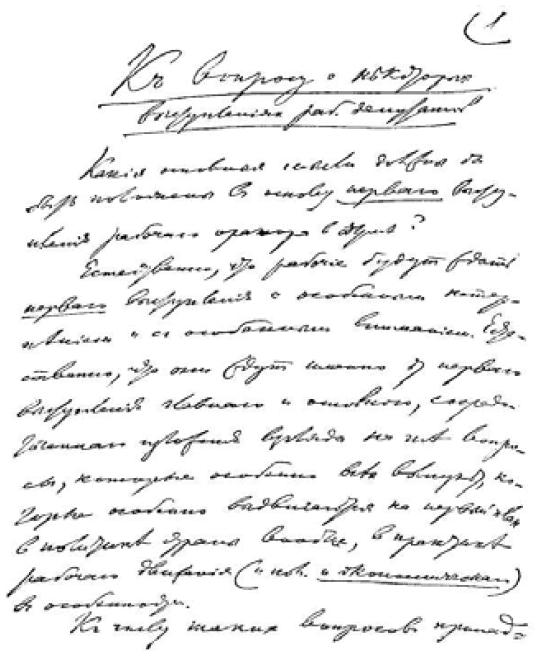 1
Къ вопросу о нѣкоторыхъ
выступленіяхъ раб. депутатовъ
Какія основныя мысли должны
быть положены въ основу первого высту-
пленія рабочаго оратора в думѣ?
Естественно, что рабочіе будутъ ждать
первого выступленія с особенным нетер-
пѣніем и съ особенным вниманіем. Есте-
ственно, что они ждут именно от первого
выступленія главнаго и основного, сосредо-
точеннаго изложенія взгляда на тѣ вопро-
сы, которые особенно всех волнуют, ко-
торые особенно выдвигаются на первый план
в политикѣ страны вообще, в практикѣ
рабочаго движенія (и пол. и экономическаго)
въ особенности.
Къ числу таких вопросовъ принад-